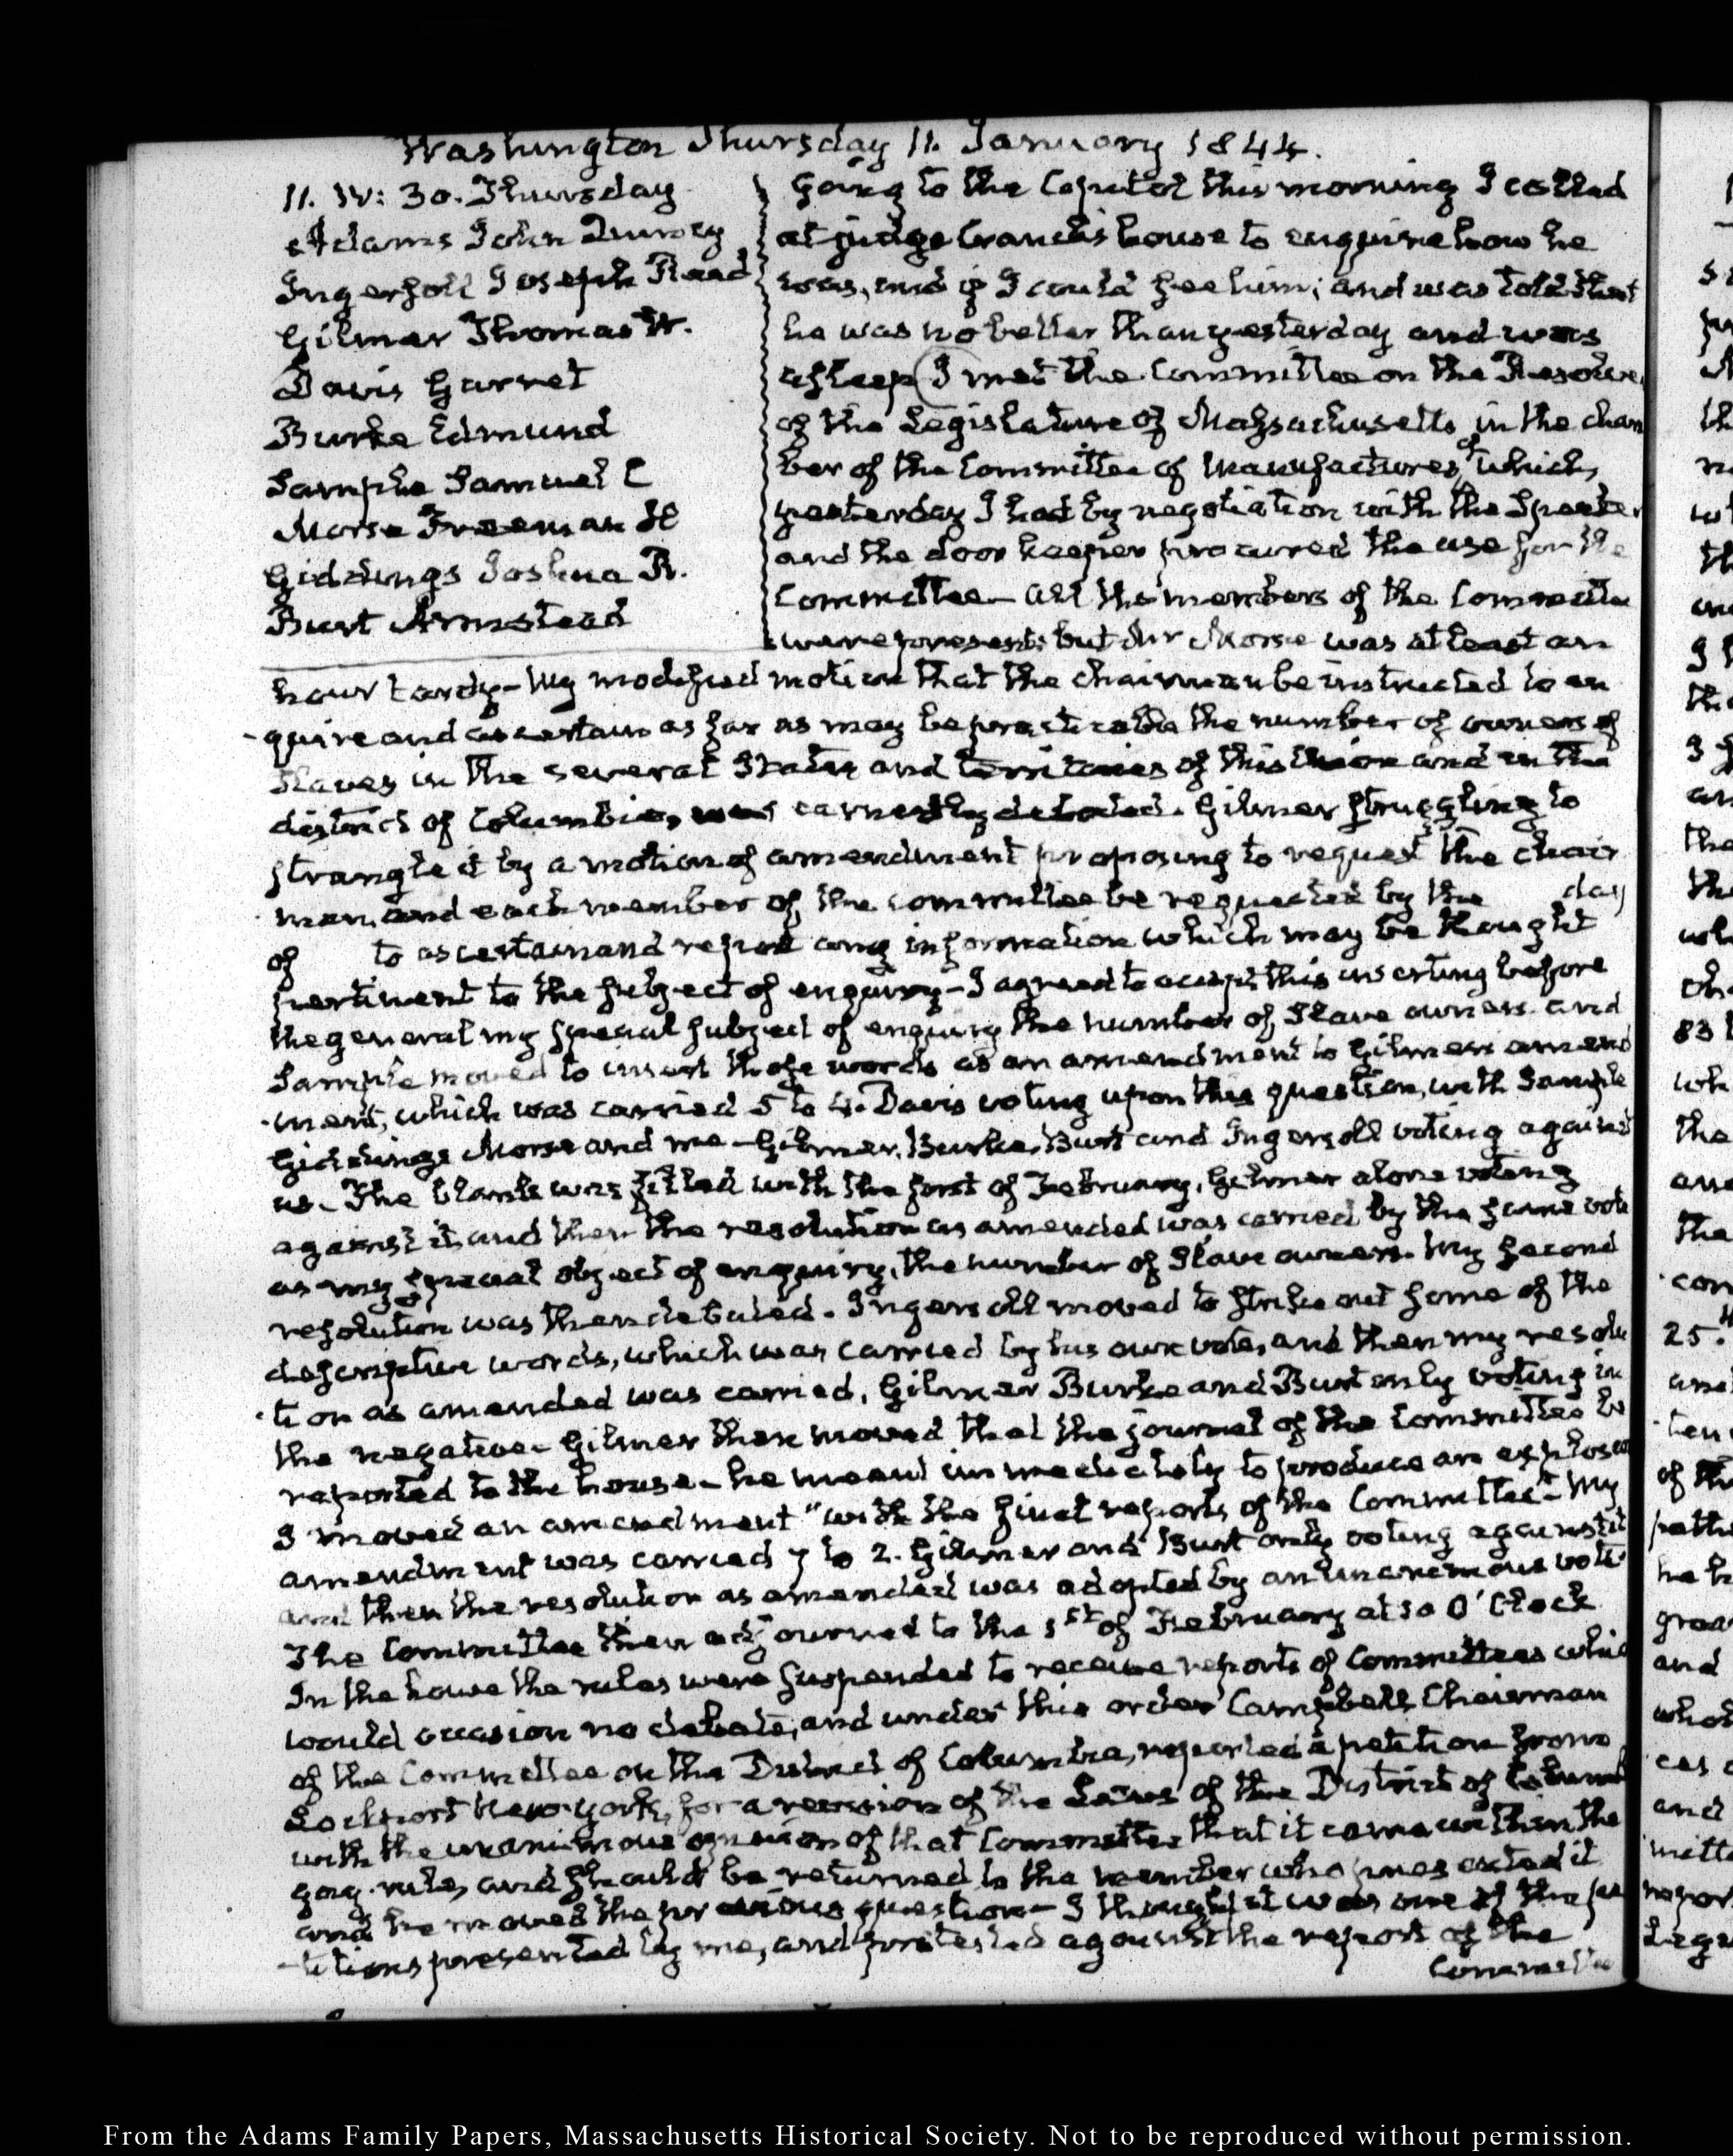 Washington Thursday 11. January 1844.
11. IV: 30. Thursday
Adams John Quincy
Ingersoll Joseph Reed
Gilmer Thomas W.
Davis Garret
Burke Edmund
Sample Samuel C
Morse Freeman H
Giddings Joshua R.
Burt Armstead
Going to the Capitol this morning I called
at judge Cranch's house to enquire how he
was, and if I could see him; and was told that
he was no better than yesterday and was
asleep I met the Committee on the Resolves
of the Legislature of Massachusetts in the cham
ber of the Committee of Manufactures, of which,
yesterday I had by negotiation with the Speaker
and the door keeper procured the use for the
Committee— All the members of the Committee
were present: but Mr Morse was at least an
hour tardy— My modified motion that the chairman be instructed to en
-quire and ascertain as far as may be practicable the number of owners of
Slaves in the several States and territories of this Union and in the
district of Columbia, was earnestly debated. Gilmer struggling to
strangle it by a motion of amendment proposing to request the chair
man, and each member of the committee be requested by the day
of to ascertain and report any information which may be thought
pertinent to the subject of enquiry— I agreed to accept this inserting before
the general my special subject of enquiry the number of Slave owners and
Sample moved to insert those words as an amendment to Gilmers amend
-ment, which was carried 5 to 4. Davis voting upon this question, with Sample
Giddings Morse and me— Gilmer, Burke, Burt and Ingersoll voting against
us— The blank was filled with the first of February, Gilmer alone voting
against it, and then the resolution as amended was carried by the same vote
as my special object of enquiry, the number of Slave owners. My second
resolution was then debated. Ingersoll moved to strike out some of the
descriptive words, which was carried by his own vote, and then my resolu
-tion as amended was carried, Gilmer Burke and Burt only voting in
the negative— Gilmer then moved that the journal of the Committee be
reported to the house— he meant immediately to produce an explosion
I moved an amendment "with the final reports of the Committee"— My
amendment was carried 7 to 2. Gilmer and Burt only voting against it
and then the resolution as amended was adopted by an unanimous vote
The Committee then adjourned to the 1st of February at 10 O'Clock
In the house the rules were suspended to receive reports of Committees which
would occasion no debate; and under this order Campbell Chairman
of the Committee on the District of Columbia, reported a petition from
Lockport New-York, for a revision of the Laws of the District of Columb
with the unanimous opinion of that Committee that it came within the
gag-rule, and should be returned to the member who presented it
and he moved the previous question— I thought it was one of the pe
-titions presented by me, and protested against the report of the
Committee
From the Adams Family Papers, Massachusetts Historical Society. Not to be reproduced without permission.